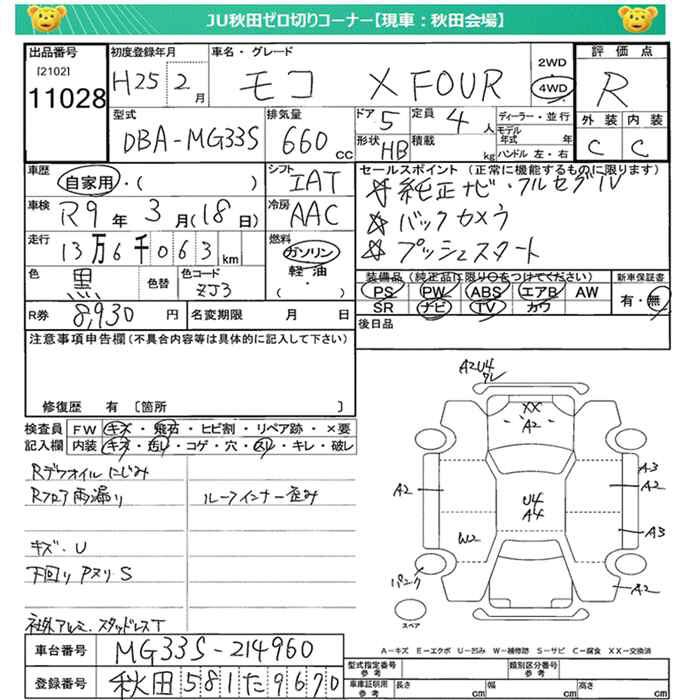 JU秋田ゼロ切りコーナー【現車：秋田会場】
出品番号
[2102]
11028
初度登録年月
H25 2月
車名・グレード
モコ X FOUR
2WD
4WD
評価点
R
外装 内装
C C
型式
DBA-MG33S
排気量
660 cc
ドア 5
定員 4 人
形状 HB
積載 kg
ディーラー・並行
モデル年式 年
ハンドル 左・右
車歴
自家用・( )
シフト
IAT
セールスポイント (正常に機能するものに限ります)
☆ 純正ナビ・フルセグTV
☆ バックカメラ
☆ プッシュスタート
車検
R9年 3月(18日)
冷房
AAC
走行
13万6千063km
燃料
ガソリン
軽油
・( )
色
黒
色替
色コード
ZJ3
装備品 (純正品に限り○をつけてください)
PS PW ABS エアB AW
SR ナビ TV カワ
新車保証書
有・無
R券 8,930 円
名変期限 月 日
後日品
注意事項申告欄(不具合内容等は具体的に記入して下さい)
修復歴 有 〔箇所 〕
検査員記入欄
FW キズ・飛石・ヒビ割・リペア跡・×要
内装 キズ・汚レ・コゲ・穴・スレ・キレ・破レ
Rデフオイルにじみ
Rフロア雨漏り
ルーフインナー歪み
キズ・U
下回りアヌリS
社外アルミ.スタッドレスT
A2U4
ワレ
XX
A2
A3
A2
A2
U4
A4
A3
W2
パンク
A2
スペア
A-キズ E-エクボ U-凹み W-補修跡 S-サビ C-腐食 XX-交換済
車台番号 MG33S-214960
登録番号 秋田581た9670
型式指定番号
参考
類別区分番号
参考
車庫証明用
参考
長さ cm
幅 cm
高さ cm